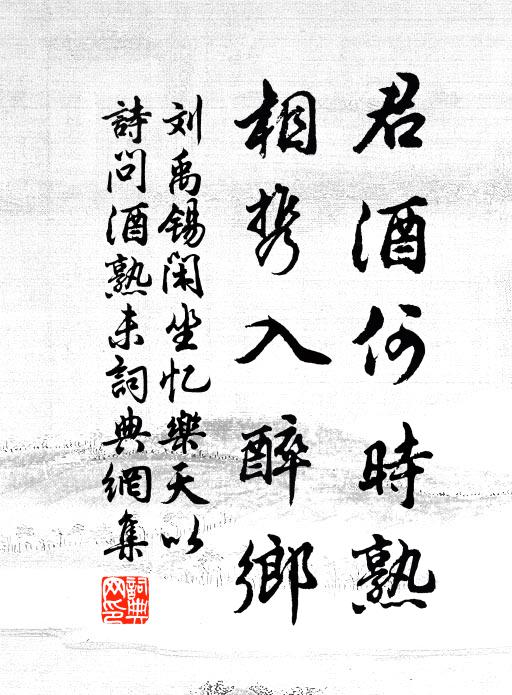 君酒何時熟
相携入醉鄉
刘禹锡闲坐忆樂天以
詩问酒熟未詞典網集
詞典